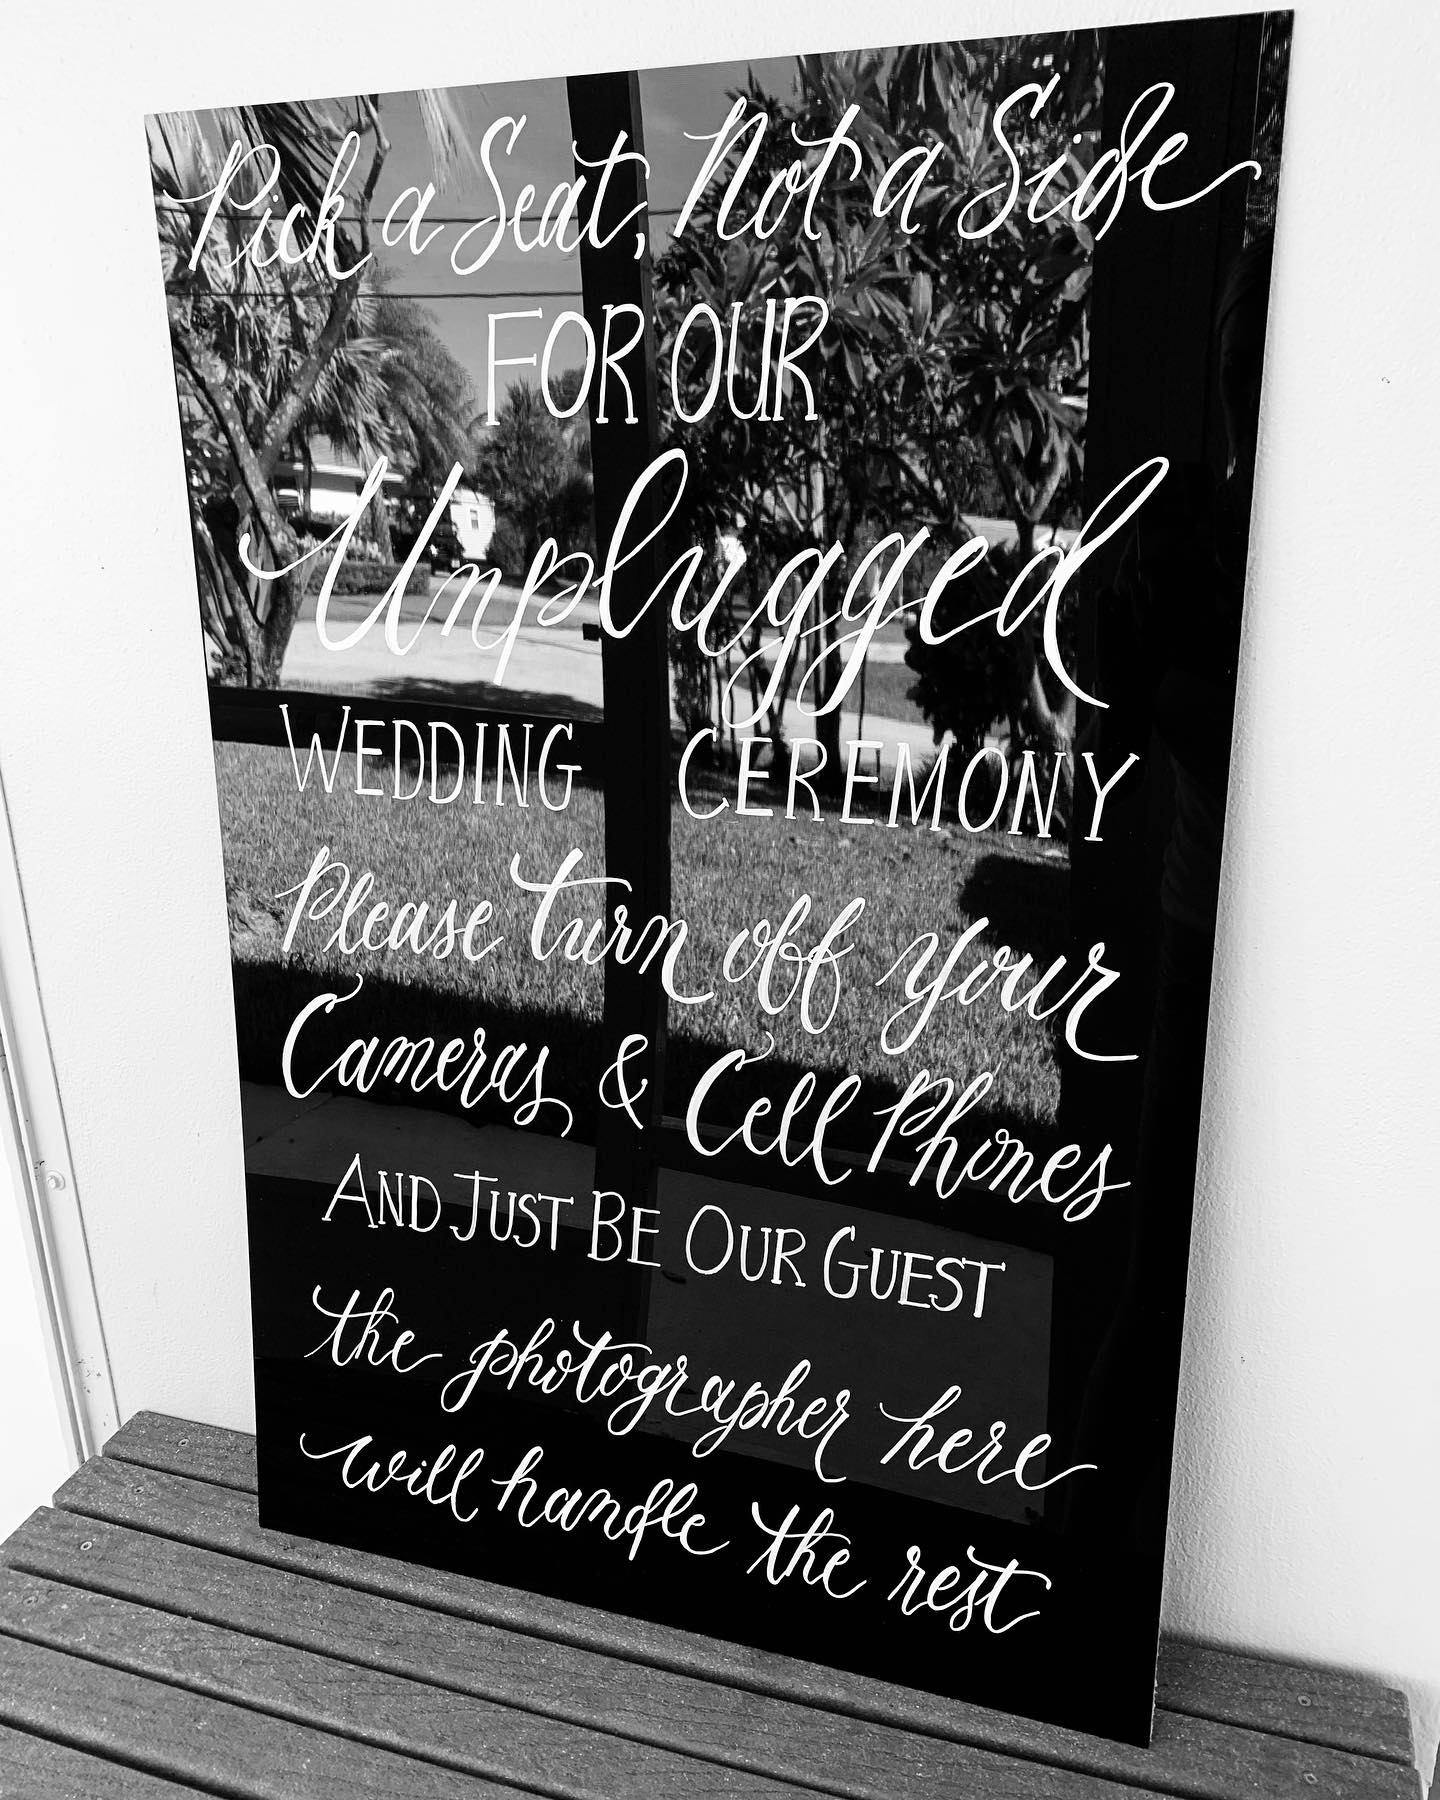 Pick a Seat, Not a Side
FOR OUR
Unplugged
WEDDING CEREMONY
Please turn off your
Cameras & Cell Phones
AND JUST BE OUR GUEST
the photographer here
will handle the rest